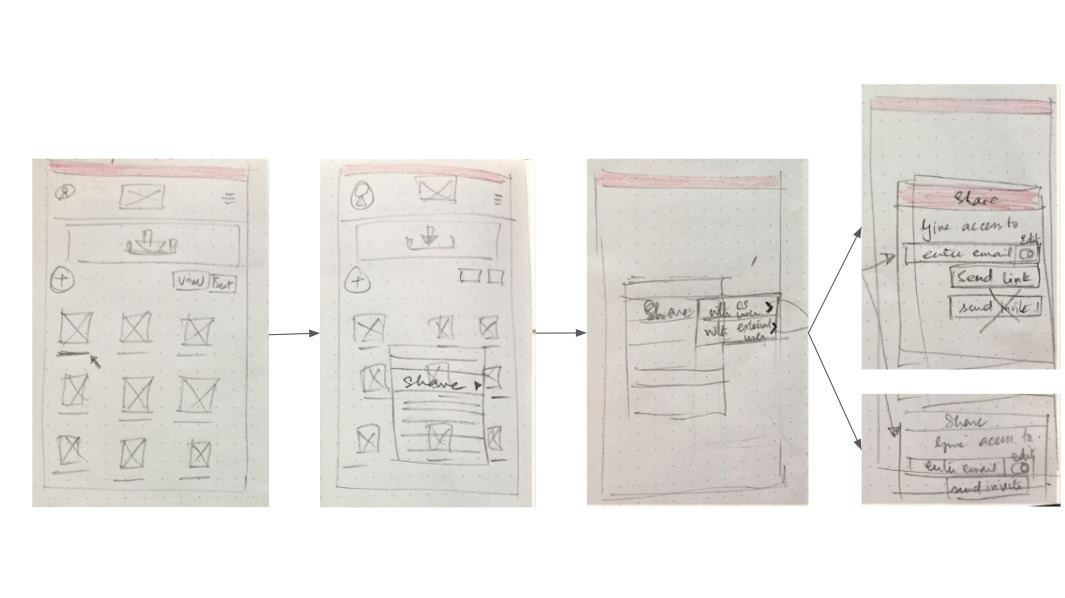 view
Sort
Share
Share
with os
user
with external
user
Share
Give access to
edit
enter email
Send link
send invite
Share
Give access to
edit
enter email
send invite